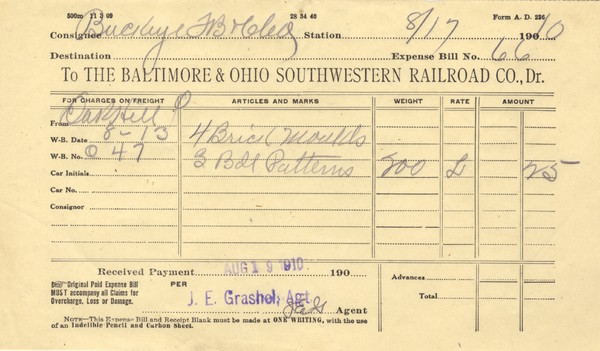 500m 11 3 09 28 34 40 Form A. D. 236
Consignee Buckeye F B Station 8/17 1910
Destination Expense Bill No. 66
To THE BALTIMORE & OHIO SOUTHWESTERN RAILROAD CO., Dr.
FOR CHARGES ON FREIGHT ARTICLES AND MARKS WEIGHT RATE AMOUNT
From Oak Hill O
W-B. Date 8-13 4 Brick Moulds
W-B. No. 047 3 Bdl Patterns 200 L 25
Car Initials
Car No.
Consignor
Received Payment AUG 19 1910 190
Advances
Total
Original Paid Expense Bill
MUST accompany all Claims for
Overcharge, Loss or Damage.
PER
J. E. Grashel, Agt.
Agent
NOTE—This Expense Bill and Receipt Blank must be made at ONE WRITING, with the use
of an Indelible Pencil and Carbon Sheet.